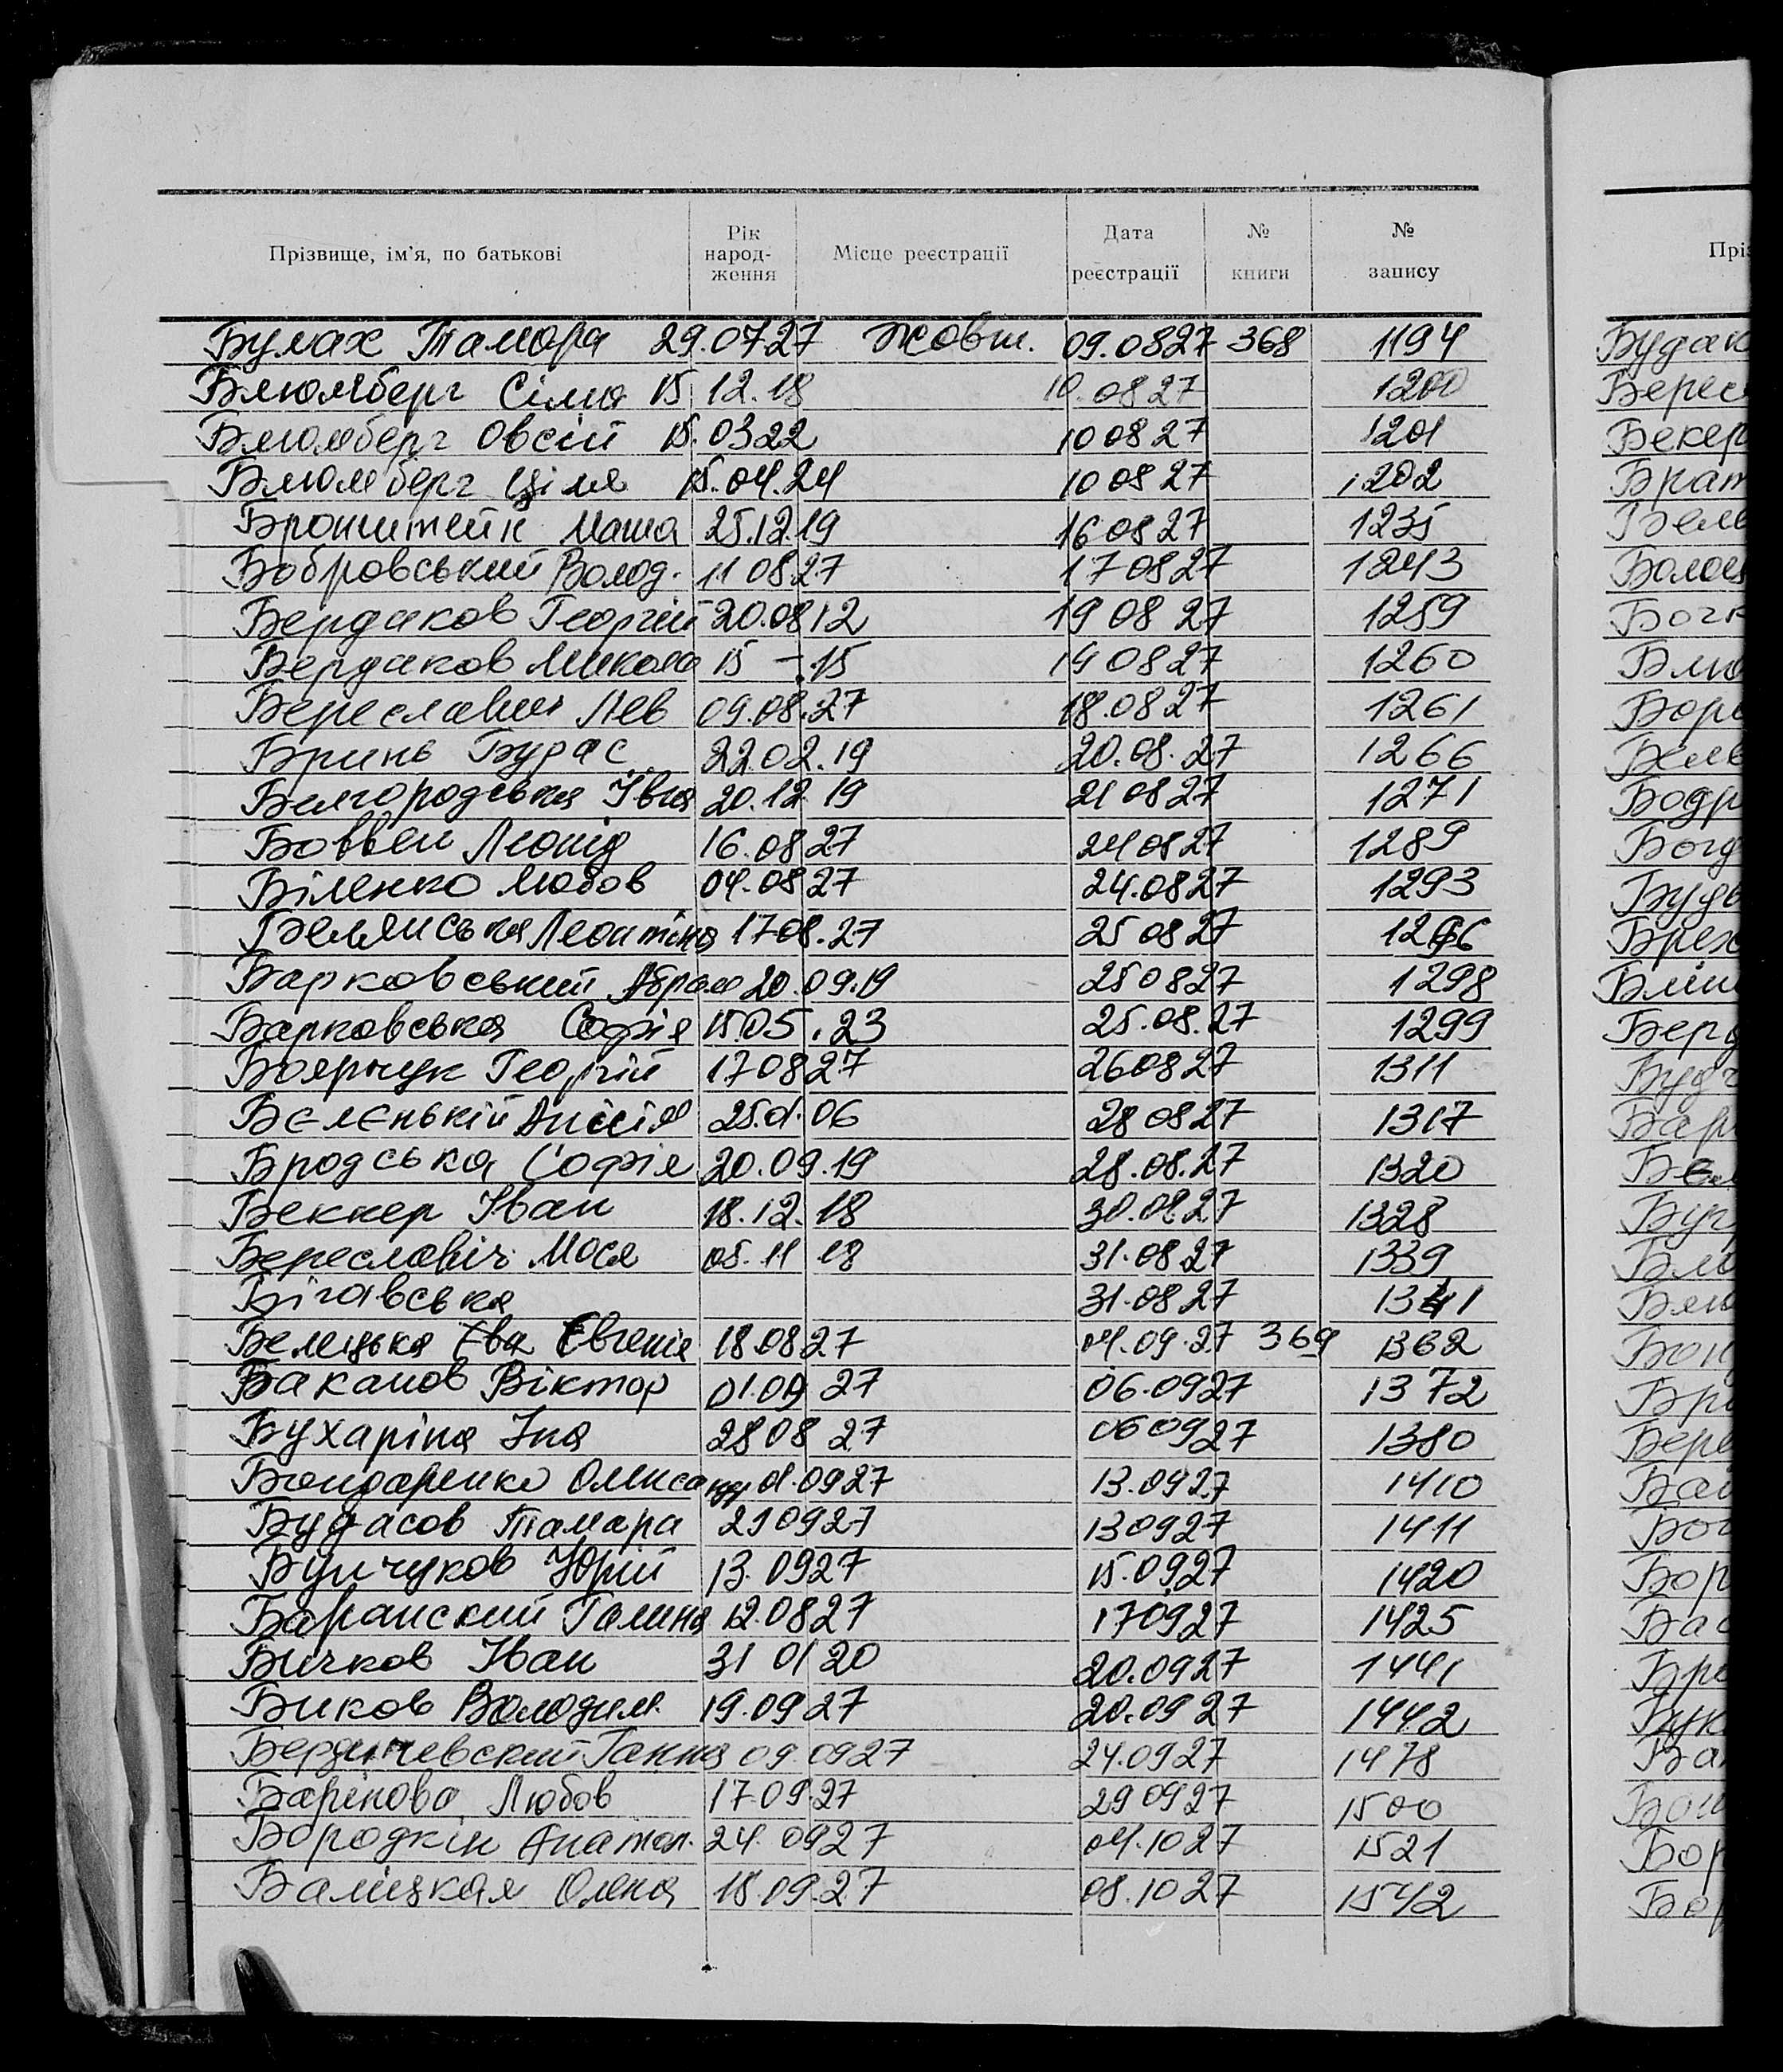 Прізвище, ім'я, по батькові Рік народ- ження Місце реєстрації Дата реєстрації № книги № запису
Булах Тамара 29.07.27 Жовт. 09.08.27 368 1194
Блюмберг Сіма 15 12.18 10.08 27 1200
Блюмберг Овсій 15.03 22 10 08 27 1201
Блюмберг Ціля 15.04.24 10 08 27 1202
Бронштейн Маша 25.12.19 16 08 27 1235
Бобровський Волод. 11 08.27 17 08 27 1243
Бердаков Георгій 20.08 12 19 08 27 1259
Бердаков Микола 15 – .15 19 08 27 1260
Береславич Лев 09.08.27 18.08 27 1261
Бринь 22.02.19 20.08.27 1266
Белгородська Івга 20.12 19 21 08 27 1271
Леонід 16.08 27 24 08 27 1289
Біленко Любов 04.08 27 24.08 27 1293
Леонтіна 17 08.27 25 08 27 1296
Барковський Абрам 20.09.19 25 08 27 1298
Барковська Софія 15.05.23 25.08.27 1299
Боярчук Георгій 17 08 27 26 08 27 1311
Бєлєнькій 25.01.06 28 08 27 1317
Бродська Софія 20.09.19 28.08.27 1320
Беккер Іван 18.12.18 30.08.27 1328
Береславіч Мося 05.11 18 31.08 27 1339
Бігавська 31.08 27 1341
Белецька Єва Євгенія 18.08 27 04.09.27 369 1362
Баканов Віктор 01.09 27 06.09 27 1372
Бухаріна Іна 28 08 27 06 09 27 1380
Бондаренко Олександ 01.09 27 13.09 27 1410
Будасов Тамара 21 09 27 13 09 27 1411
Бунчуков Юрій 13.09 27 15.09 27 1420
Баранский Галина 12.08 27 17 09 27 1425
Бичков Іван 31 01 20 20.09 27 1441
Биков Володим. 19.09 27 20.09 27 1442
Бердичевский Ганна 09 09 27 24.09 27 1478
Барінова Любов 17.09.27 29 09 27 1500
Бородкін Анатол. 24.09 27 04.10 27 1521
Баліцкая Олена 18.09.27 08.10 27 1542
Пріз
Будак
Берес
Бекер
Брат
Беле
Бочк
Блю
Бодр
Богд
Берд
Бар
Бор
Бор